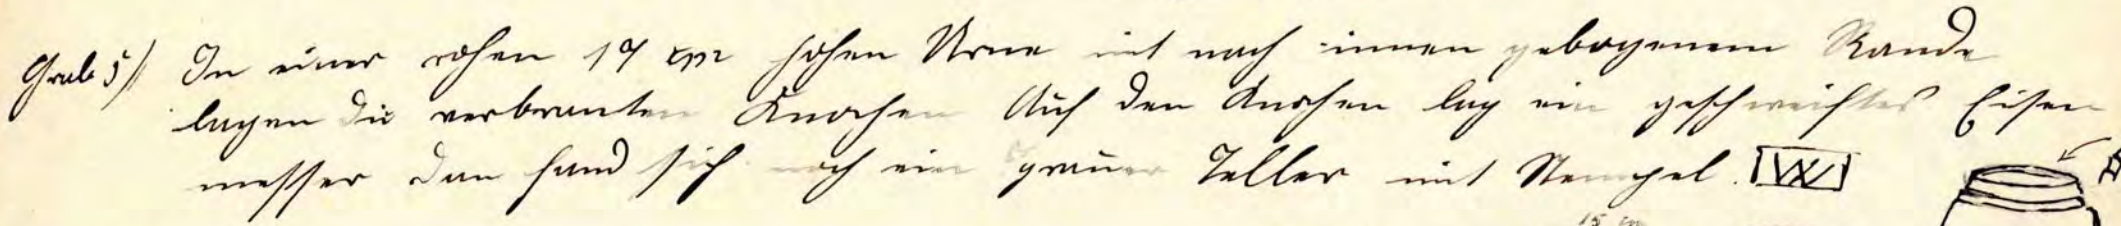 Grab 5) In einer rohen 19 cm hohen Urne mit nach innen gebogenem Rande
lagen die verbranten Knochen Auf den Knochen lag ein geschweiftes Eisen
messer dan fand sich noch ein grauer Teller mit Stempel.
15 cm